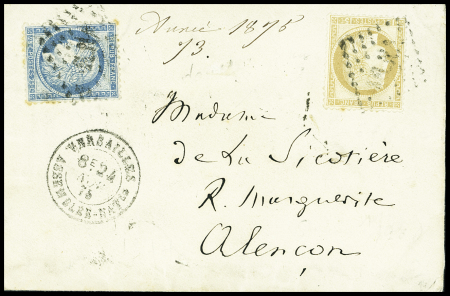 Année 1875
73.
Madame
de La Sicotière
R. Marguerite
Alençon
VERSAILLES
ASSEMBLÉE-NATLE
8E 24